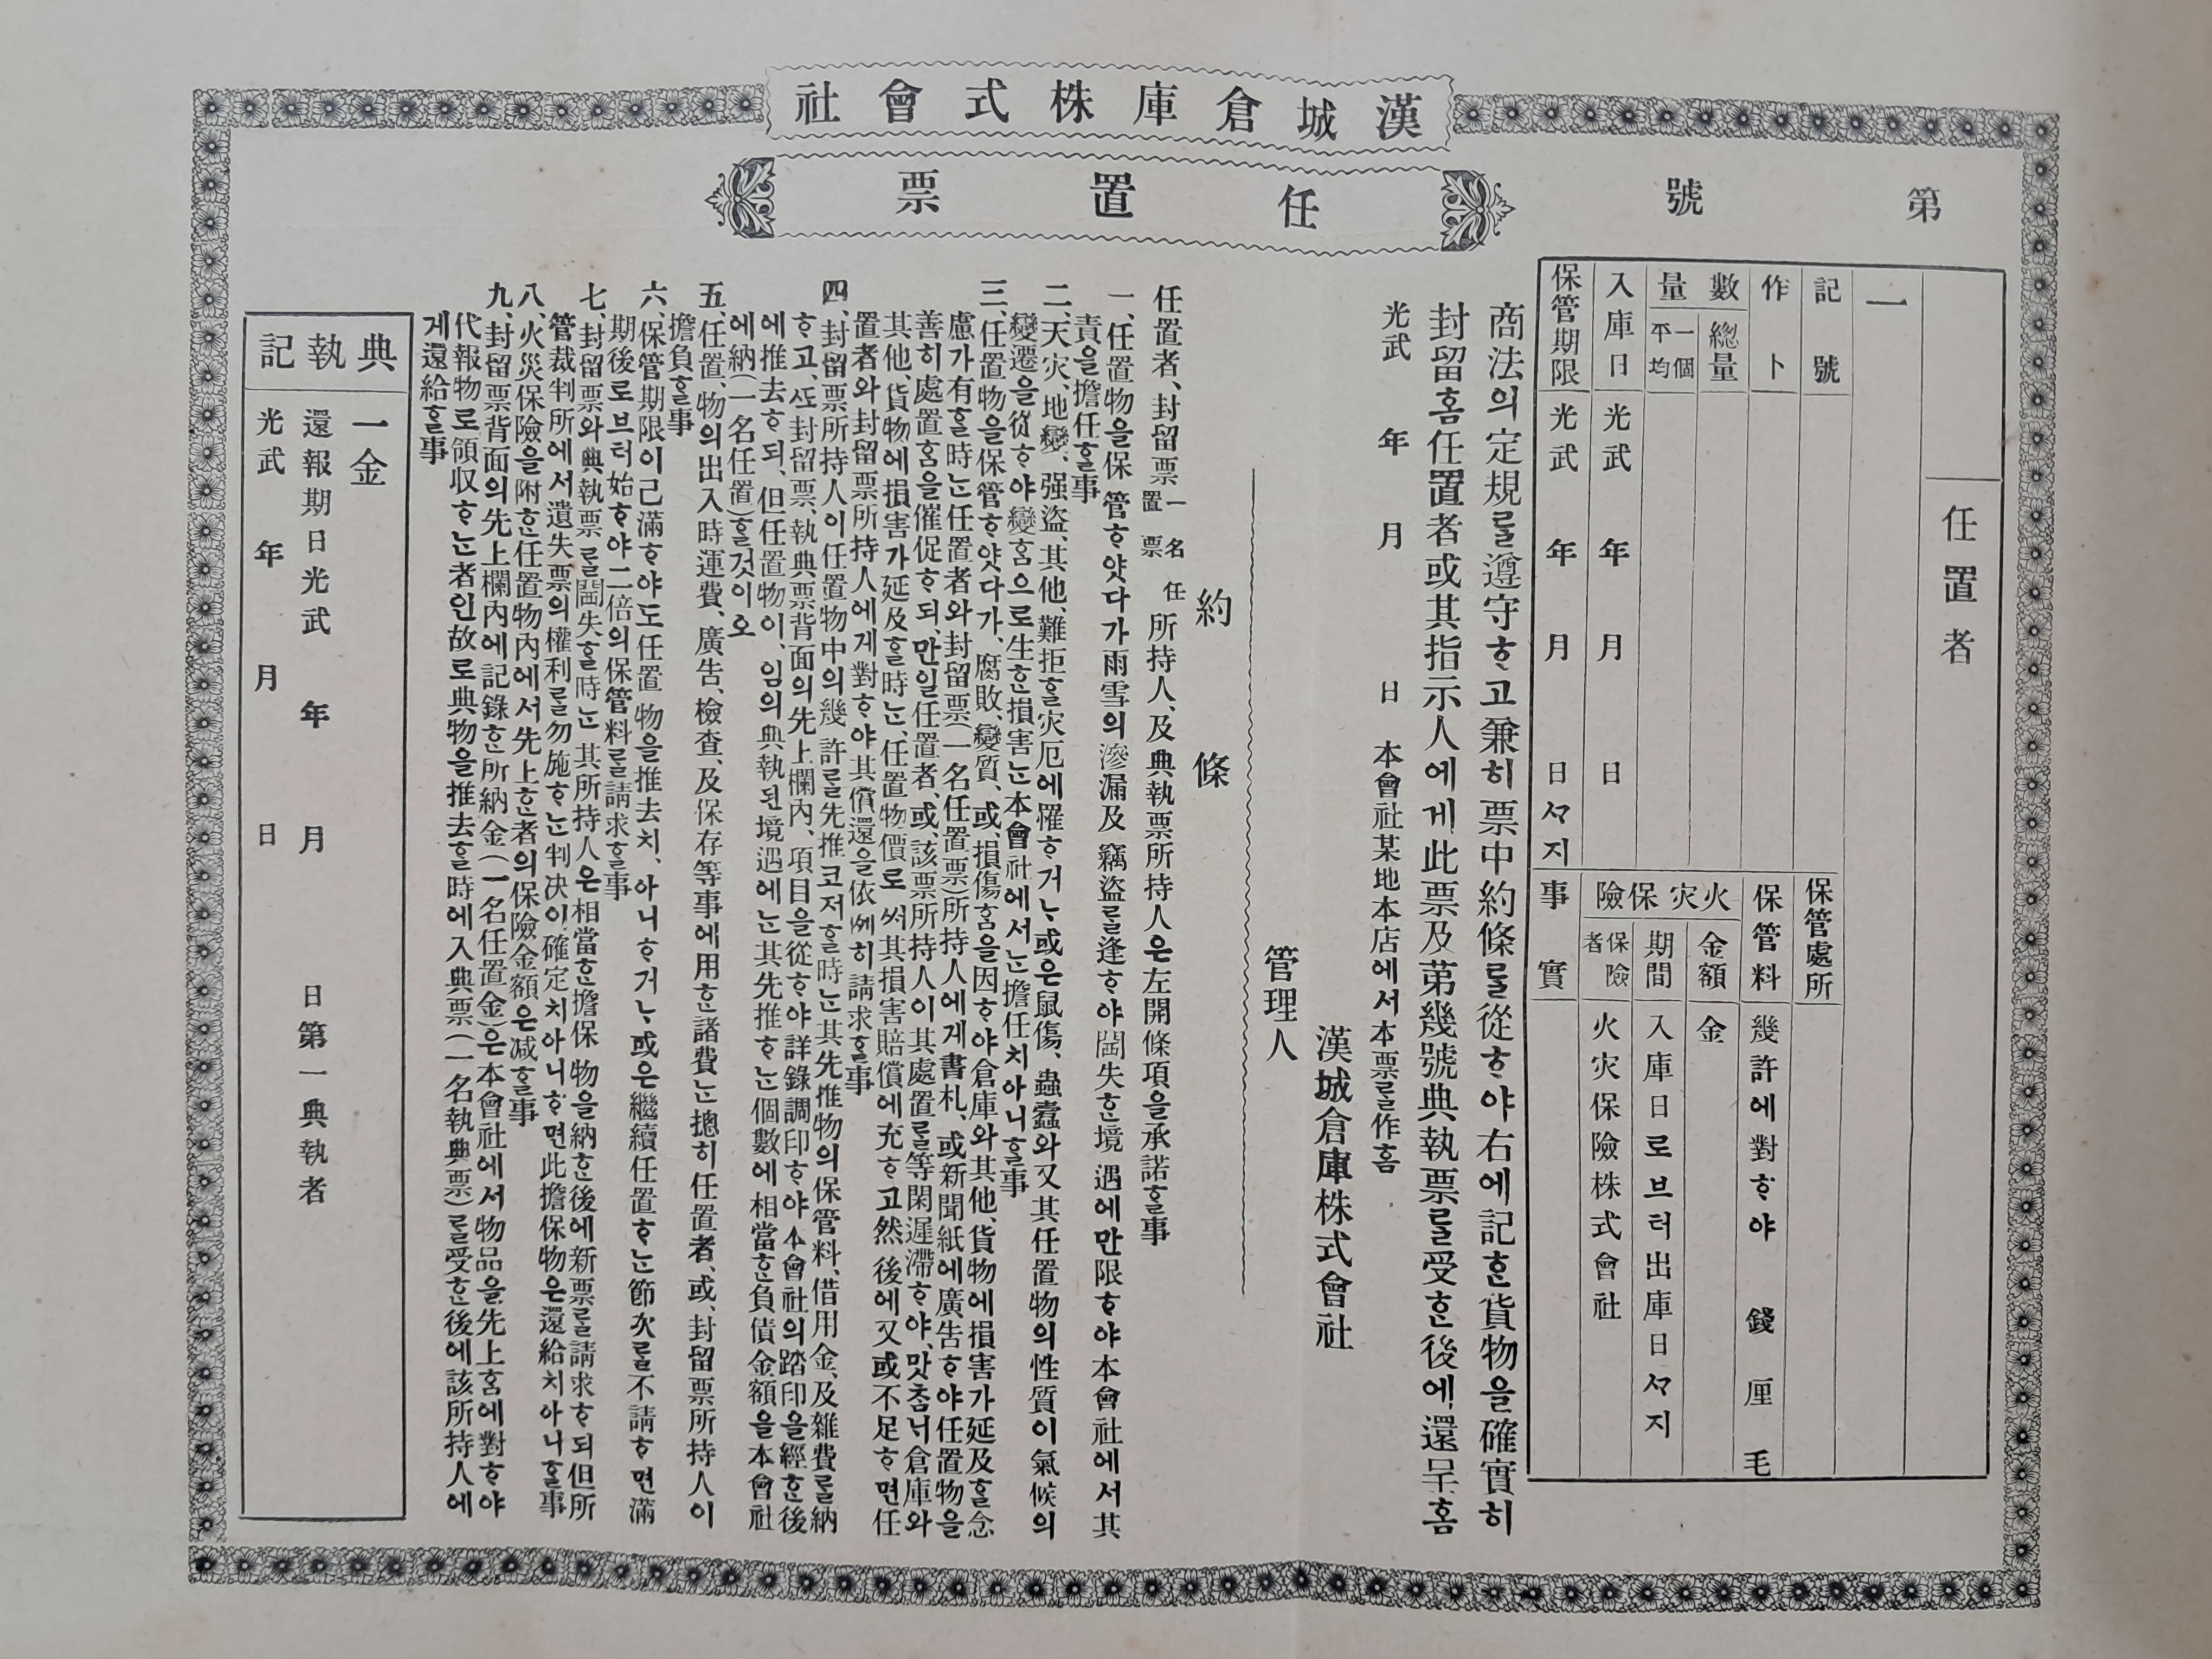 漢城倉庫株式會社
任置票
第 號
任置者
一
記號
作卜
數量
總量
一個平均
入庫日 光武 年 月 日
保管期限 光武 年 月 日ᄭᆞ지
保管處所
保管料 幾許에對ᄒᆞ야 錢 厘 毛
火灾保險
金額 金
期間 入庫日로브터出庫日ᄭᆞ지
保險者 火灾保險株式會社
事實
商法의定規ᄅᆞᆯ遵守ᄒᆞ고兼히票中約條ᄅᆞᆯ從ᄒᆞ야右에記ᄒᆞᆫ貨物을確實히
封留홈任置者或其指示人에게此票及第幾號典執票ᄅᆞᆯ受ᄒᆞᆫ後에還呈홈
光武 年 月 日 本會社某地本店에서本票ᄅᆞᆯ作홈
漢城倉庫株式會社
管理人
約條
任置者、封留票一名任置票所持人、及典執票所持人은左開條項을承諾ᄒᆞᆯ事
一、任置物을保管ᄒᆞ얏다가雨雪의滲漏及竊盜ᄅᆞᆯ逢ᄒᆞ야閪失ᄒᆞᆫ境遇에만限ᄒᆞ야本會社에서其
責을擔任ᄒᆞᆯ事
二、天灾、地變、强盜、其他、難拒ᄒᆞᆯ灾厄에罹ᄒᆞ거ᄂᆞ或은鼠傷、蟲蠧와又其任置物의性質이氣候의
變遷을從ᄒᆞ야變ᄒᆞᆷ으로生ᄒᆞᆫ損害ᄂᆞᆫ本會社에서ᄂᆞᆫ擔任치아니ᄒᆞᆯ事
三、任置物을保管ᄒᆞ얏다가、腐敗、變質、或、損傷ᄒᆞᆷ을因ᄒᆞ야倉庫와其他、貨物에損害가延及ᄒᆞᆯ念
慮가有ᄒᆞᆯ時ᄂᆞᆫ任置者와封留票(一名任置票)所持人에게書札、或新聞紙에廣告ᄒᆞ야任置物을
善히處置ᄒᆞᆷ을催促ᄒᆞ되、만일任置者、或、該票所持人이其處置ᄅᆞᆯ等閑遲滯ᄒᆞ야、맛ᄎᆞᆷ니倉庫와
其他、貨物에損害가延及ᄒᆞᆯ時ᄂᆞᆫ、任置物價로ᄡᅥ其損害賠償에充ᄒᆞ고然後에又或不足ᄒᆞ면任
置者와封留票所持人에게對ᄒᆞ야其償還을依例히請求ᄒᆞᆯ事
四、封留票所持人이任置物中의幾許ᄅᆞᆯ先推코저ᄒᆞᆯ時ᄂᆞᆫ其先推物의保管料、借用金、及雜費ᄅᆞᆯ納
ᄒᆞ고、ᄯᅩ封留票、執典票背面의先上欄內、項目을從ᄒᆞ야詳錄調印ᄒᆞ야本會社의踏印을經ᄒᆞᆫ後
에推去ᄒᆞ되、但任置物이、임의典執된境遇에ᄂᆞᆫ其先推ᄒᆞᄂᆞᆫ個數에相當ᄒᆞᆫ負債金額을本會社
에納(一名任置)ᄒᆞᆯ것이오
五、任置、物의出入時運費、廣告、檢査、及保存等事에用ᄒᆞᆫ諸費ᄂᆞᆫ摠히任置者、或、封留票所持人이
擔負ᄒᆞᆯ事
六、保管期限이已滿ᄒᆞ야도任置物을推去치、아니ᄒᆞ거ᄂᆞ或은繼續任置ᄒᆞᄂᆞᆫ節次ᄅᆞᆯ不請ᄒᆞ면滿
期後로브터始ᄒᆞ야二倍의保管料ᄅᆞᆯ請求ᄒᆞᆯ事
七、封留票와典執票ᄅᆞᆯ閪失ᄒᆞᆯ時ᄂᆞᆫ其所持人은相當ᄒᆞᆫ擔保物을納ᄒᆞᆫ後에新票ᄅᆞᆯ請求ᄒᆞ되但所
管裁判所에서遺失票의權利ᄅᆞᆯ勿施ᄒᆞᄂᆞᆫ判决이確定치아니ᄒᆞ면此擔保物은還給치아니ᄒᆞᆯ事
八、火災保險을附ᄒᆞᆫ任置物內에서先上ᄒᆞᆫ者의保險金額은减ᄒᆞᆯ事
九、封留票背面의先上欄內에記錄ᄒᆞᆫ所納金(一名任置金)은本會社에서物品을先上ᄒᆞᆷ에對ᄒᆞ야
代報物로領収ᄒᆞᄂᆞᆫ者인故로典物을推去ᄒᆞᆯ時에入典票(一名執典票)ᄅᆞᆯ受ᄒᆞᆫ後에該所持人에
게還給ᄒᆞᆯ事
典執記
一金
還報期日光武 年 月 日第一典執者
光武 年 月 日